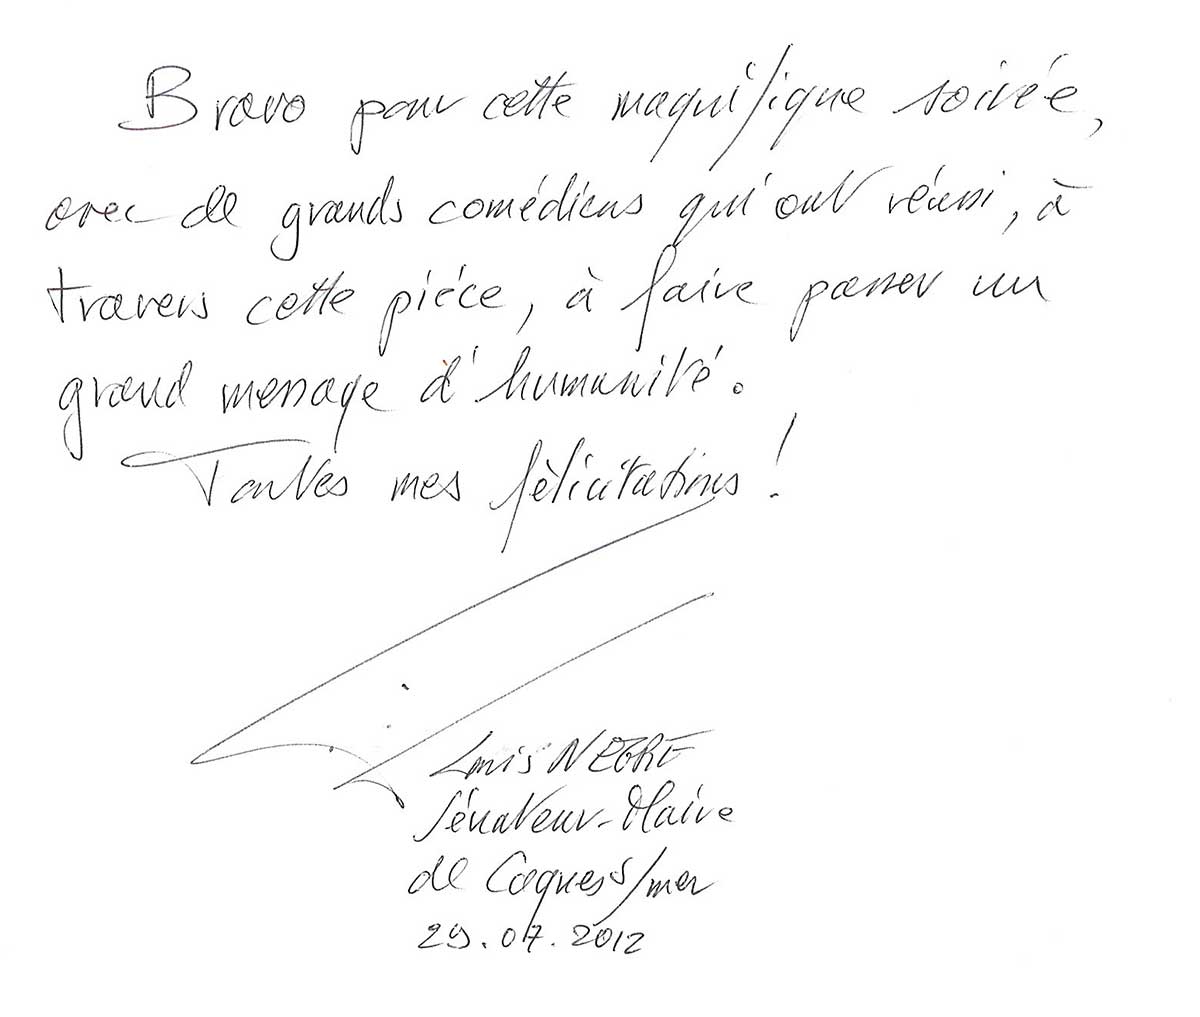 Bravo pour cette magnifique soirée,
avec de grands comédiens qui ont réussi, à
travers cette pièce, à faire passer un
grand message d'humanité.
Toutes mes félicitations !
Louis NEGRE
Sénateur-Maire
de Cagnes s/mer
29.07.2012